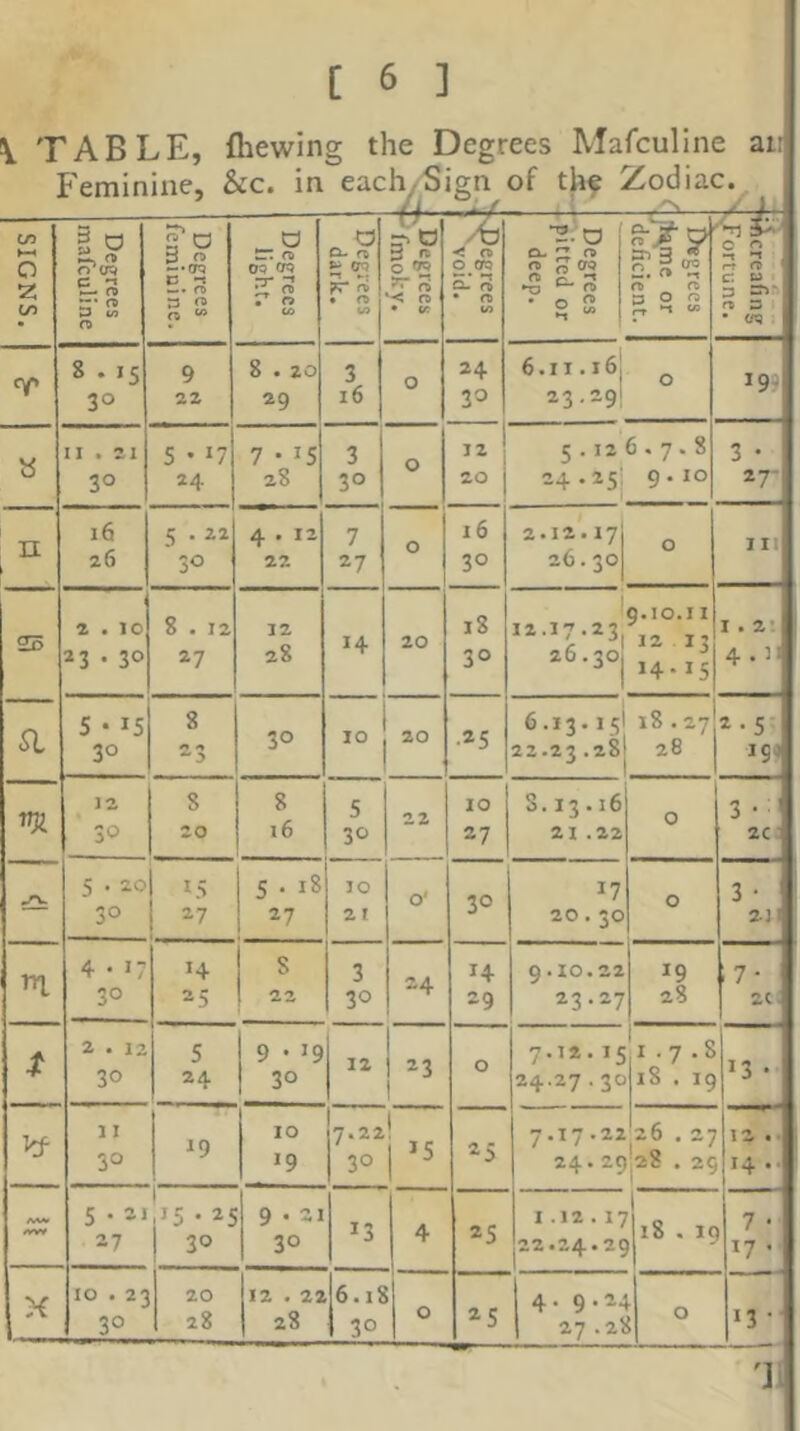 [ 6 ]
TABLE, ſhewing the Degrees Maſculine
Feminine, &c. in each Sign of the Zodiac.
SIGNS. | Degrees maſculine | Degrees feminine. | Degrees light. | Degrees dark. | Degrees ſmoky. | Degrees void. | Degrees pitted or deep. | Degrees lame or deficient. | increaſing Fortune.
♈ | 8 . 15 | 9 | 8 . 20 | 3 | 0 | 24 | 6.11.16 | 0 | 19
30 | 22 | 29 | 16 | 30 | 23.29
♉ | 11 . 21 | 5 . 17 | 7 . 15 | 3 | 0 | 12 | 5 . 12 | 6 . 7 . 8 | 3 .
30 | 24 | 28 | 30 | 20 | 24 . 25 | 9 . 10 | 27
♊ | 16 | 5 . 22 | 4 . 12 | 7 | 0 | 16 | 2.12.17 | 0 | 11
26 | 30 | 22 | 27 | 30 | 26.30
♋ | 2 . 10 | 8 . 12 | 12 | 14 | 20 | 18 | 12.17.23 | 9.10.11 | 1 . 2
23 . 30 | 27 | 28 | 30 | 26.30 | 12 13 | 4 .
14.15
♌ | 5 . 15 | 8 | 30 | 10 | 20 | .25 | 6.13.15 | 18 . 27 | 2 . 5
30 | 23 | 22.23.28 | 28 | 19
♍ | 12 | 8 | 8 | 5 | 22 | 10 | 8.13.16 | 0 | 3 .
30 | 20 | 16 | 30 | 27 | 21 .22
♎ | 5 . 20 | 15 | 5 . 18 | 10 | 0 | 30 | 17 | 0 | 3 .
30 | 27 | 27 | 21 | 20 . 30
♏ | 4 . 17 | 14 | 8 | 3 | 24 | 14 | 9.10.22 | 19 | 7 .
30 | 25 | 22 | 30 | 29 | 23.27 | 28
♐ | 2 . 12 | 5 | 9 . 19 | 12 | 23 | 0 | 7.12.15 | 1 . 7 . 8 | 13 .
30 | 24 | 30 | 24.27.30 | 18 . 19
♑ | 11 | 19 | 10 | 7.22 | 15 | 25 | 7.17.22 | 26 . 27 | 12 .
30 | 19 | 30 | 24.29 | 28 . 29 | 14 .
♒ | 5 . 21 | 15 . 25 | 9 . 21 | 13 | 4 | 25 | 1.12.17 | 18 . 19 | 7 .
27 | 30 | 30 | 22.24.29 | 17 .
♓ | 10 . 23 | 20 | 12 . 22 | 6.18 | 0 | 25 | 4. 9.24 | 0 | 13 .
30 | 28 | 28 | 30 | 27.28